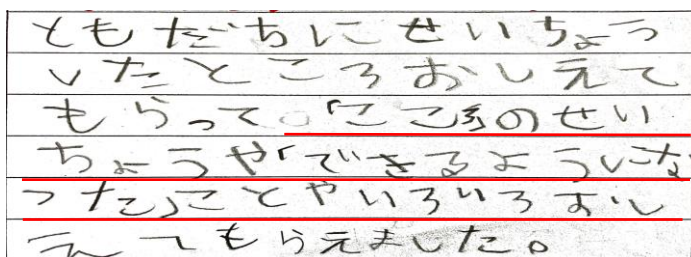 ともだちにせいちょう
したところおしえて
もらって。「こころのせい
ちょうや「できるようにな
った」ことやいろいろおし
えてもらえました。